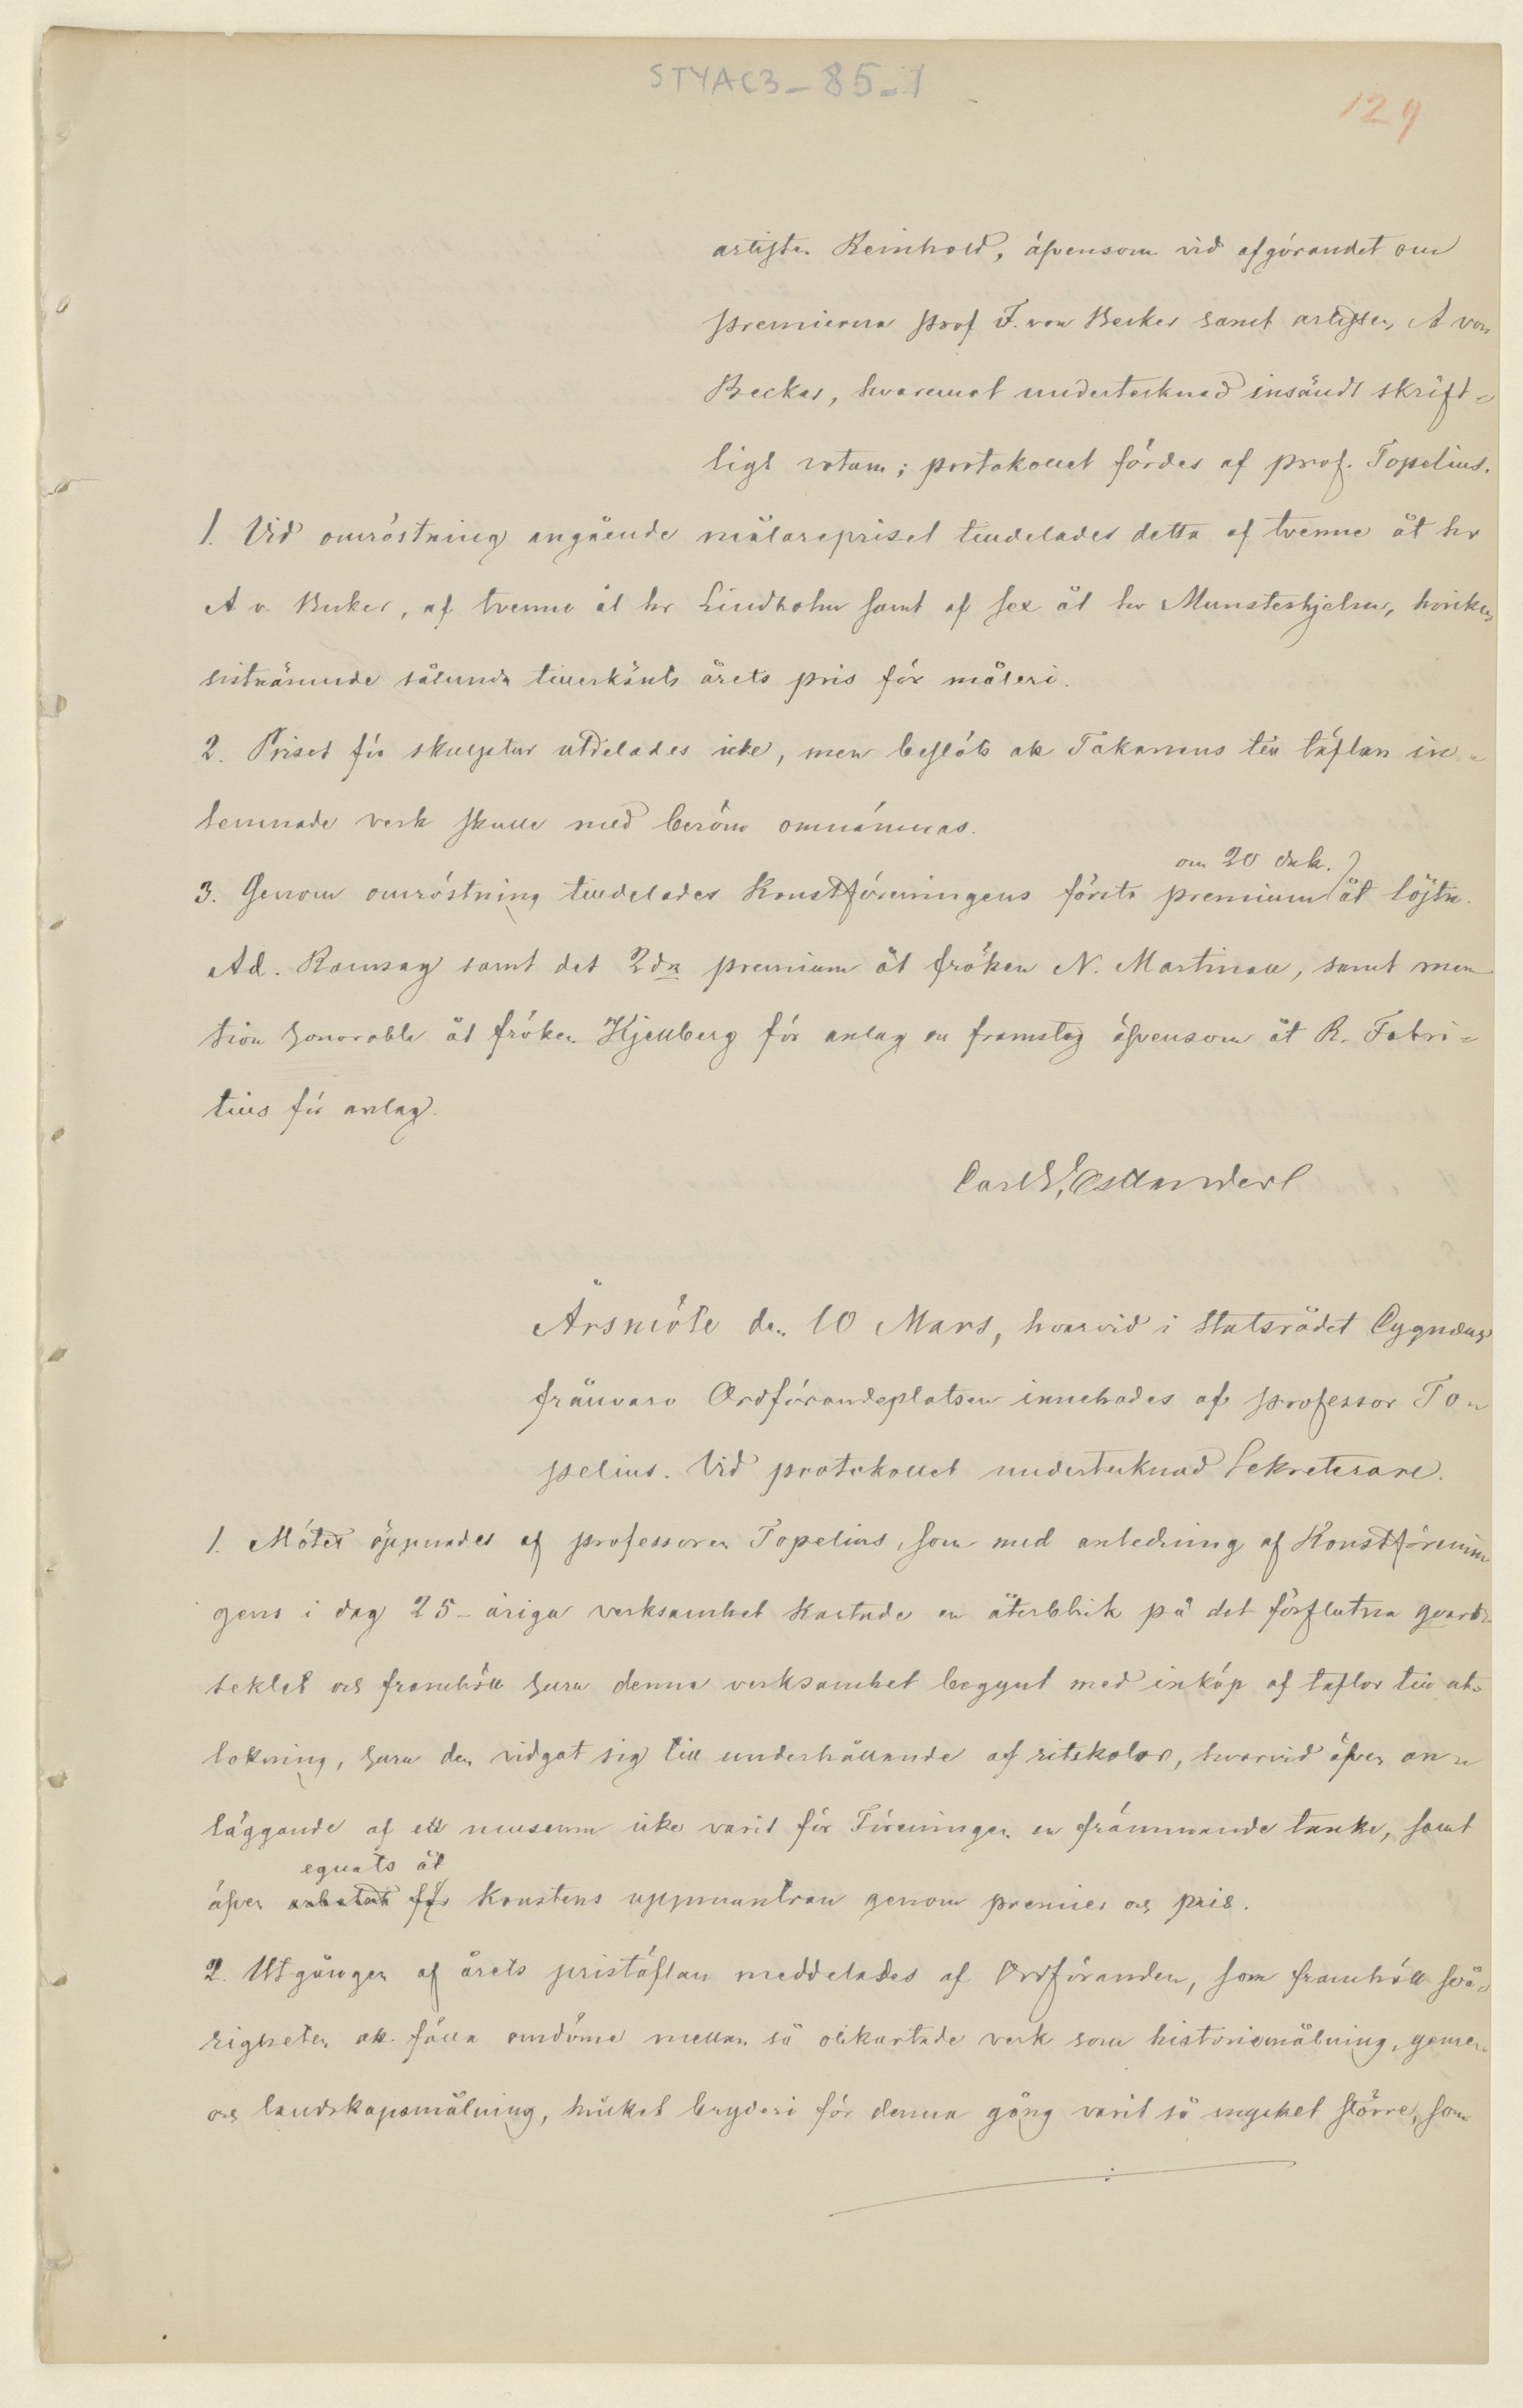 STYAC3-85-1
129
artisten Reinhold, äfvensom vid afgörandet om
premierna prof F. von Becker samt artisten A von
Becker, hvaremot undertecknad insändt skrift-
ligt votum; protokollet fördes af prof. Topelius.
1. Vid omröstning angående målarepriset tilldelades detta af tvenne åt hr
A v. Becker, af tvenne åt hr Lindholm samt af sex åt hr Munsterhjelm, hvilken
sistnämnde sålunda tillerkänts årets pris för måleri.
2. Priset för skulptur utdelades icke, men beslöts att Takanens till täflan in-
lemnade verk skulle med beröm omnämnas.
om 20 duk.
3. Genom omröstning tilldelades Konstföreningens första premium åt löjtn.
Ad. Ramsay samt det 2dra premium åt fröken N. Martinau, samt men
tion honorable åt fröken Kjellberg för anlag och framsteg äfvensom åt R. Fabri-
tius för anlag.
Carl G. Estlander
Årsmöte den 10 Mars, hvarvid i Statsrådet Cygnæus
frånvaro Ordförandeplatsen innehades af professor To-
pelius. Vid protokollet undertecknad Sekreterare.
1. Mötet öppnades af professoren Topelius, som med anledning af Konstförenin
gens i dag 25-åriga verksamhet kastade en återblick på det förflutna qvart-
seklet och framhöll huru denna verksamhet begynt med inköp af taflor till ut-
lottning, huru den vidgat sig till underhållande af ritskolor, hvarvid äfven an-
läggande af ett museum icke varit för Föreningen en främmande tanke, samt
egnats åt
äfven arbetat för konstens uppmuntran genom premier och pris.
2. Utgången af årets pristäflan meddelades af Ordföranden, som framhöll svå-
righeten att fälla omdöme mellan så olikartade verk som historiemålning, genre-
och landskapsmålning, hvilket bryderi för denna gång varit så mycket större, som